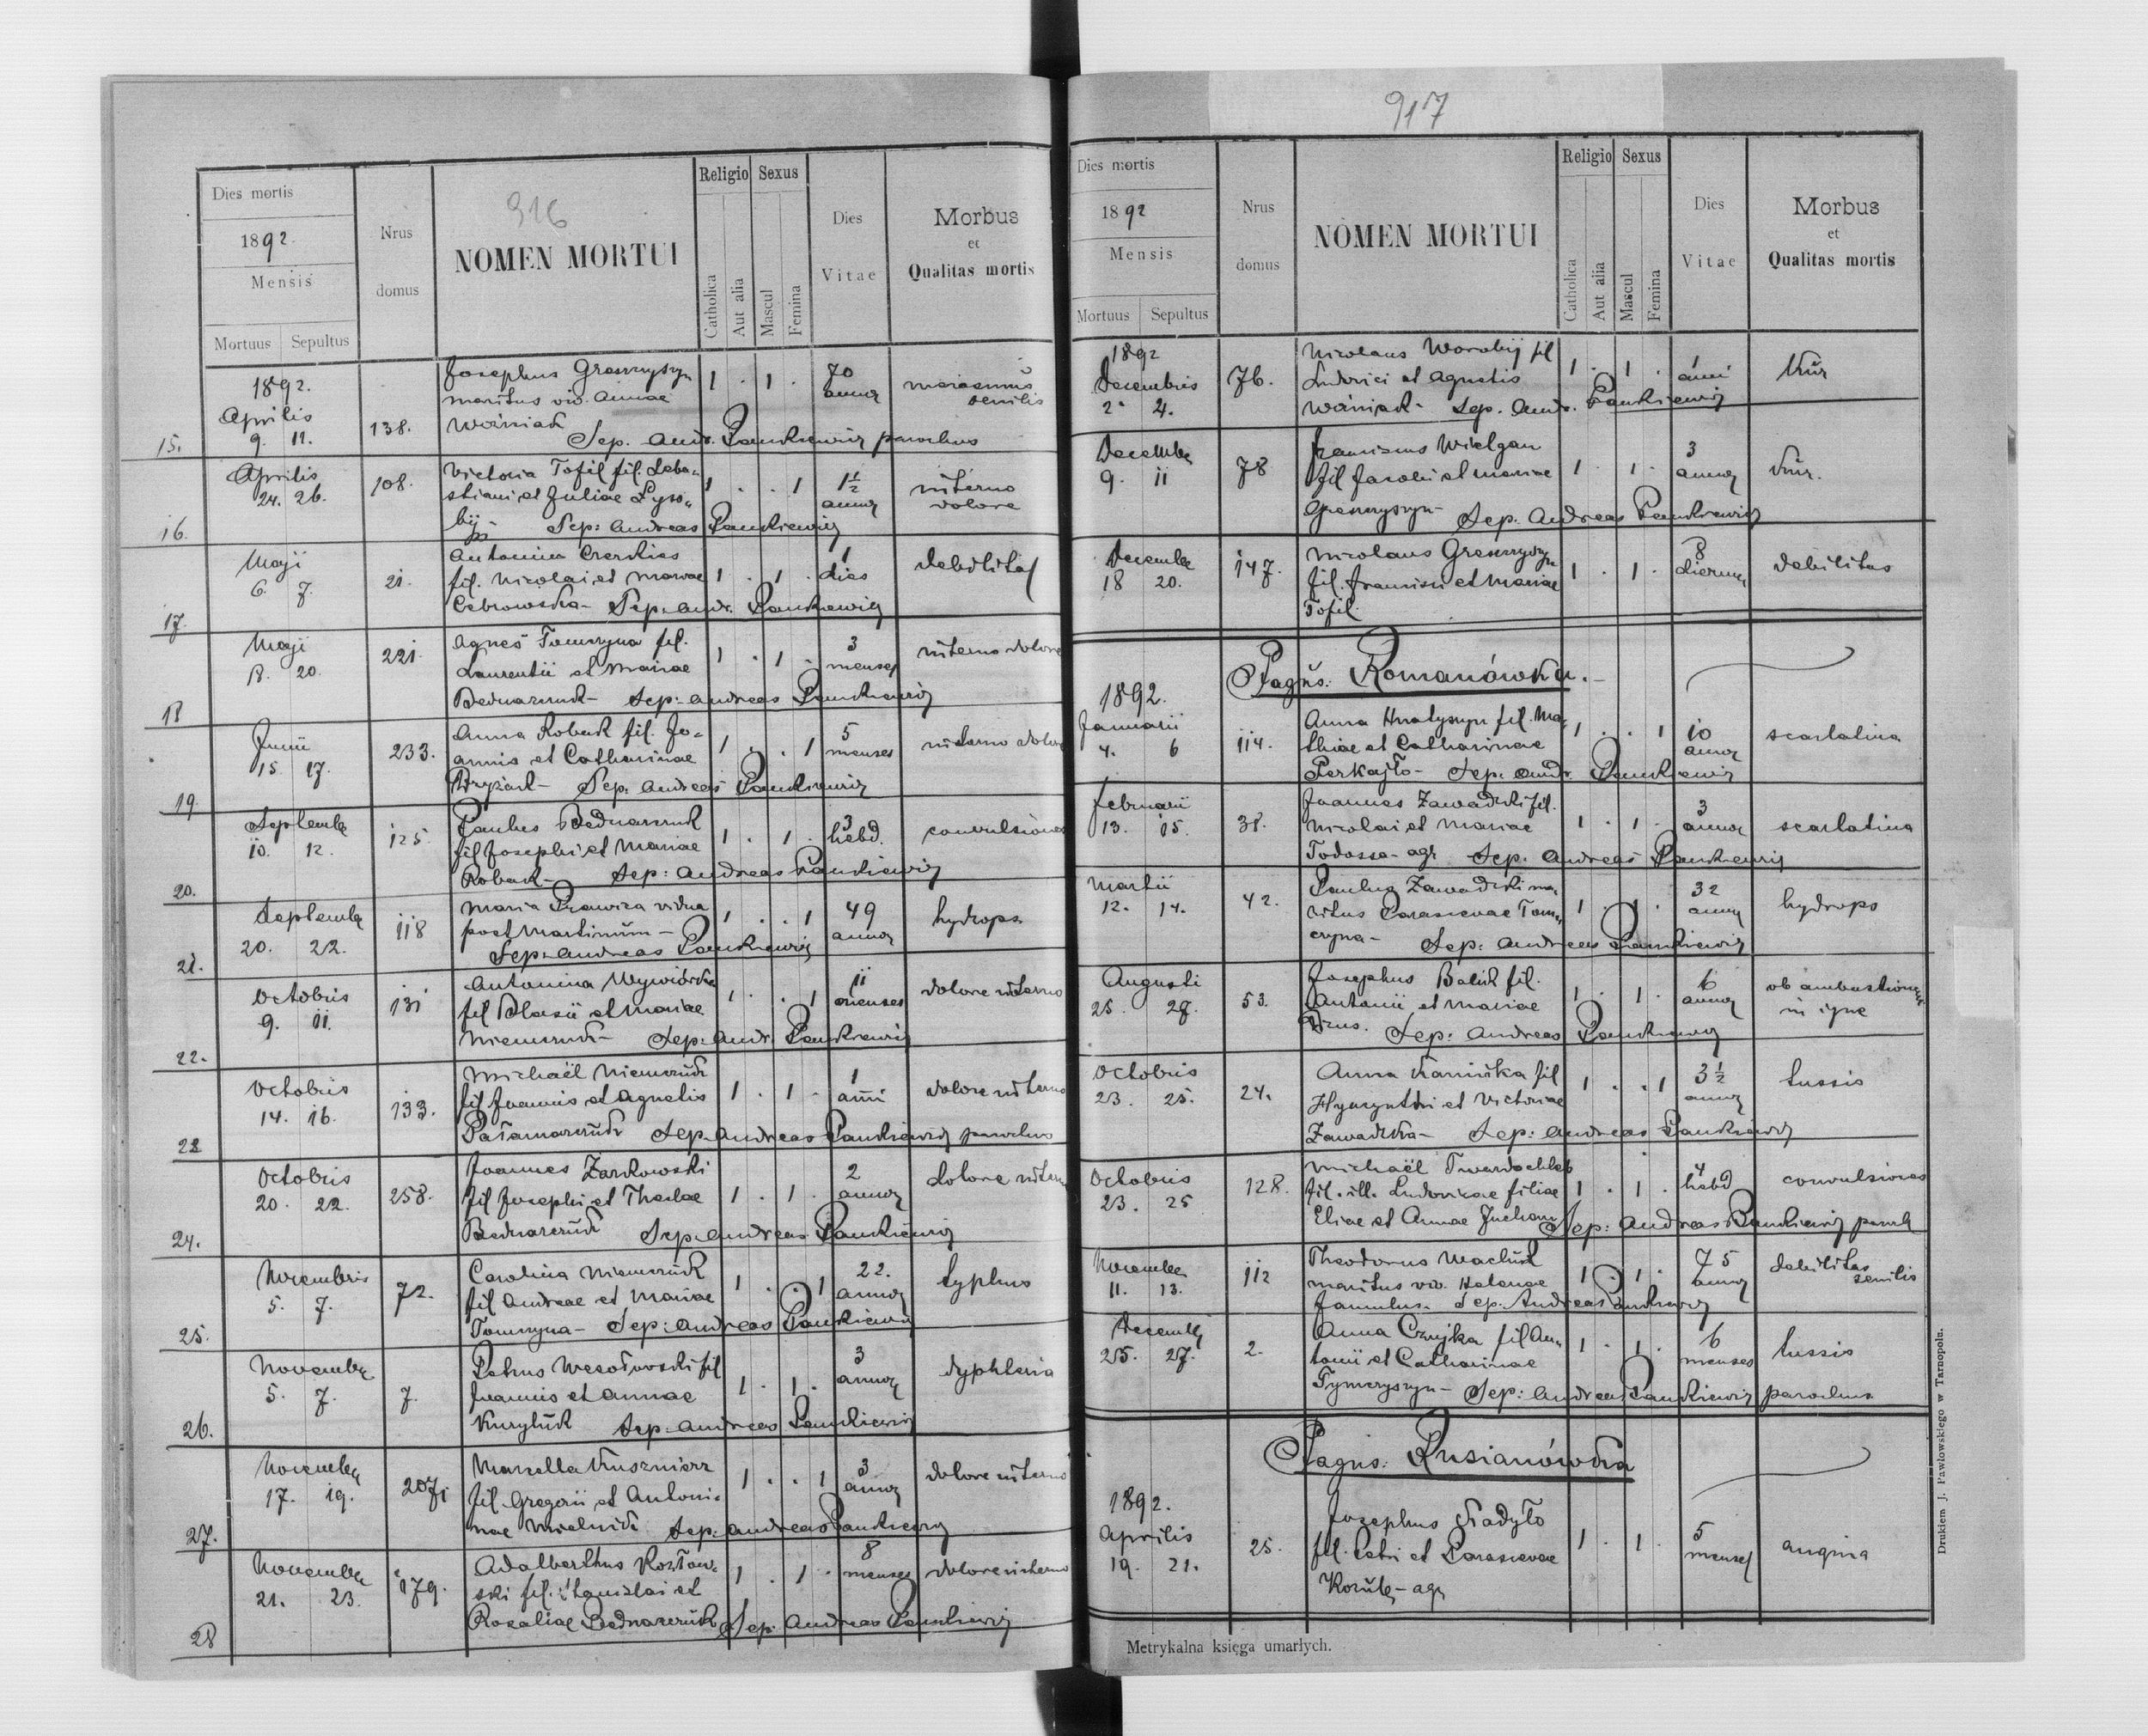 916
Dies mortis
1892.
Mensis
Mortuus Sepultus
Nrus domus
NOMEN MORTUI
Religio
Catholica
Aut alia
Sexus
Mascul
Femina
Dies Vitae
Morbus
et
Qualitas mortis
1892.
15. Aprilis 9. 11. 138.
Josephus Gremzyszyn
maritus viv. Annae
Woźniak
1 . 1 . 70 annor marasmus senilis
Sep. Andr. Pankiewicz parochus
16. Aprilis 24. 26. 108.
Victoria Tofil fil. Seba-
stiani et Juliae Łyso-
bij
1 . . 1 1½ annor interno dolore
Sep: Andreas Pankiewicz
17. Maji 6. 7. 21.
Antonius
fil. Nicolai et Mariae
Cebrowska - Sep. Andr. Pankiewicz
1 . 1 . 1 dies debilitas
18 Maji 18. 20. 221.
Agnes Tomczyna fil.
Laurentii et Mariae
Bednarczuk - Sep: Andreas Pankiewicz
1 . 1 . 3 menses interno dolore
19. Junii 15. 17. 233.
Anna Robak fil. Jo-
annis et Catharinae
Sep. Andreas Pankiewicz
1 . . 1 5 menses interno dolore
20. Septembr 10. 12. 125.
Paulus Bednarczuk
fil Josephi et Mariae
Robak - Sep: Andreas Pankiewicz
1 . 1 . 3 hebd. convulsiones
21. Septembr 20. 22. 118
Maria Prawica vidua
post Martinum -
Sep: Andreas Pankiewicz
1 . . 1 49 annor hydrops
22. Octobris 9. 11. 131
Antonina Wywiórka
fil Blasii et Mariae
Niemczuk - Sep: Andr. Pankiewicz
1 . . 1 11 menses dolore interno
23 Octobris 14. 16. 133.
Michaël Niemczuk
fil Joannis et Agnetis
Pałamarczuk Sep. Andreas Pankiewicz parochus
1 . 1 . 1 anni dolore interno
24. Octobris 20. 22. 258.
Joannes Żarkowski
fil Josephi et Theclae
Bednarczuk Sep. Andreas Pankiewicz
1 . 1 . 2 annor dolore interno
25. Novembris 5. 7. 72.
Carolina Niemczuk
fil Andreae et Mariae
Tomczyna - Sep: Andreas Pankiewicz
1 . . 1 22. annor typhus
26. Novembr 5. 7. 7.
Petrus Wesołowski fil
Joannis et Annae
Kuryluk Sep. Andreas Pankiewicz
1 . 1 . 3 annor dyphteria
27. Novembr 17. 19. 207
Marcella Kusznierz
fil. Gregorii et Antoni-
nae Mielnik Sep: Andreas Pankiewicz
1 . . 1 3 annor dolore interno
28 Novembr 21. 23. 179.
Adalberthus Kozłow-
ski fil. Stanislai et
Rosaliae Bednarczuk Sep: Andreas Pankiewicz
1 . 1 . 8 menses dolore interno
917
Dies mortis
1892
Mensis
Mortuus Sepultus
Nrus domus
NOMEN MORTUI
Religio
Catholica
Aut alia
Sexus
Mascul
Femina
Dies Vitae
Morbus
et
Qualitas mortis
1892
Decembris 2. 4. 76.
Nicolaus Worobij fil
Ludovici et Agnetis
Woźniak - Sep. Andr. Pankiewicz
1 . 1 . 1 anni
Decembr 9. 11 78
Franciscus Wielgan
fil Jacobi et Mariae
Gremzyszyn - Sep. Andreas Pankiewicz
1 . 1 . 3 annor
Decembr 18 20. 147.
Nicolaus Gremzyszyn
fil. Francisci et Mariae
Tofil.
1 . 1 . 8 dierum debilitas
Pagus: Romanówka.
1892.
Januarii 4. 6 114.
Anna Hnatyszyn fil. Ma-
thiae et Catharinae
Perkajło - Sep. Andr. Pankiewicz
1 . . 1 10 annor scarlatina
Februarii 13. 15. 38.
Joannes Zawadzki fil.
Nicolai et Mariae
Todossa - agr Sep. Andreas Pankiewicz
1 . 1 . 3 annor scarlatina
Martii 12. 14. 42.
Paulus Zawadzki ma-
ritus Parascevae Tom-
czyna - Sep: Andreas Pankiewicz
1 . 1 . 32 annor hydrops
Augusti 25. 27. 53.
Josephus Baluk fil.
Antonii et Mariae
Sep: Andreas Pankiewicz
1 . 1 . 6 annor ob ambustionem in igne
Octobris 23. 25. 24.
Anna Kamińska fil
Hyacynthi et Victoriae
Zawadzka - Sep: Andreas Pankiewicz
1 . . 1 3½ annor tussis
Octobris 23. 25 128.
Michaël Twardochleb
fil. ill. Ludovicae filiae
Eliae et Annae Sep: Andreas Pankiewicz paroch
1 . 1 . 4 hebd convulsiones
Novembr 11. 13. 112
Theodorus Maciuk
maritus viv. Helenae
famulus. Sep. Andreas Pankiewicz
1 . 1 . 75 annor debilitas senilis
Decembr 25. 27. 2.
Anna Czujka fil An-
tonii et Catharinae
Tymczyszyn - Sep: Andreas Pankiewicz parochus
1 . 1 . 6 menses tussis
Pagus: Rusianówka
1892.
Aprilis 19. 21. 25.
Josephus Kadyło
fil. Petri et Parascevae
agr
1 . 1 . 5 menses angina
Metrykalna księga umarłych.
Drukiem J. Pawłowskiego w Tarnopolu.